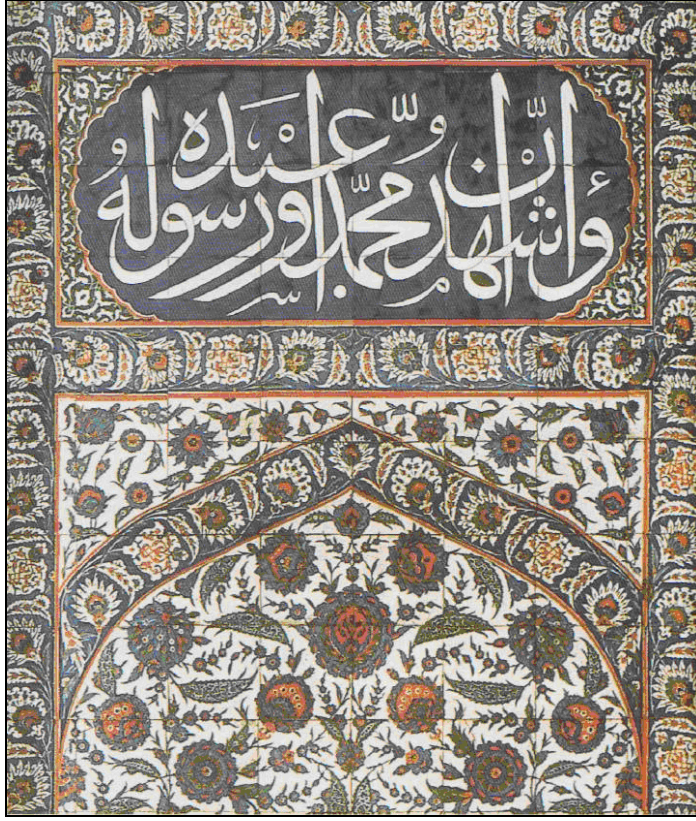 وأشهد أنّ محمّدا عبده ورسوله